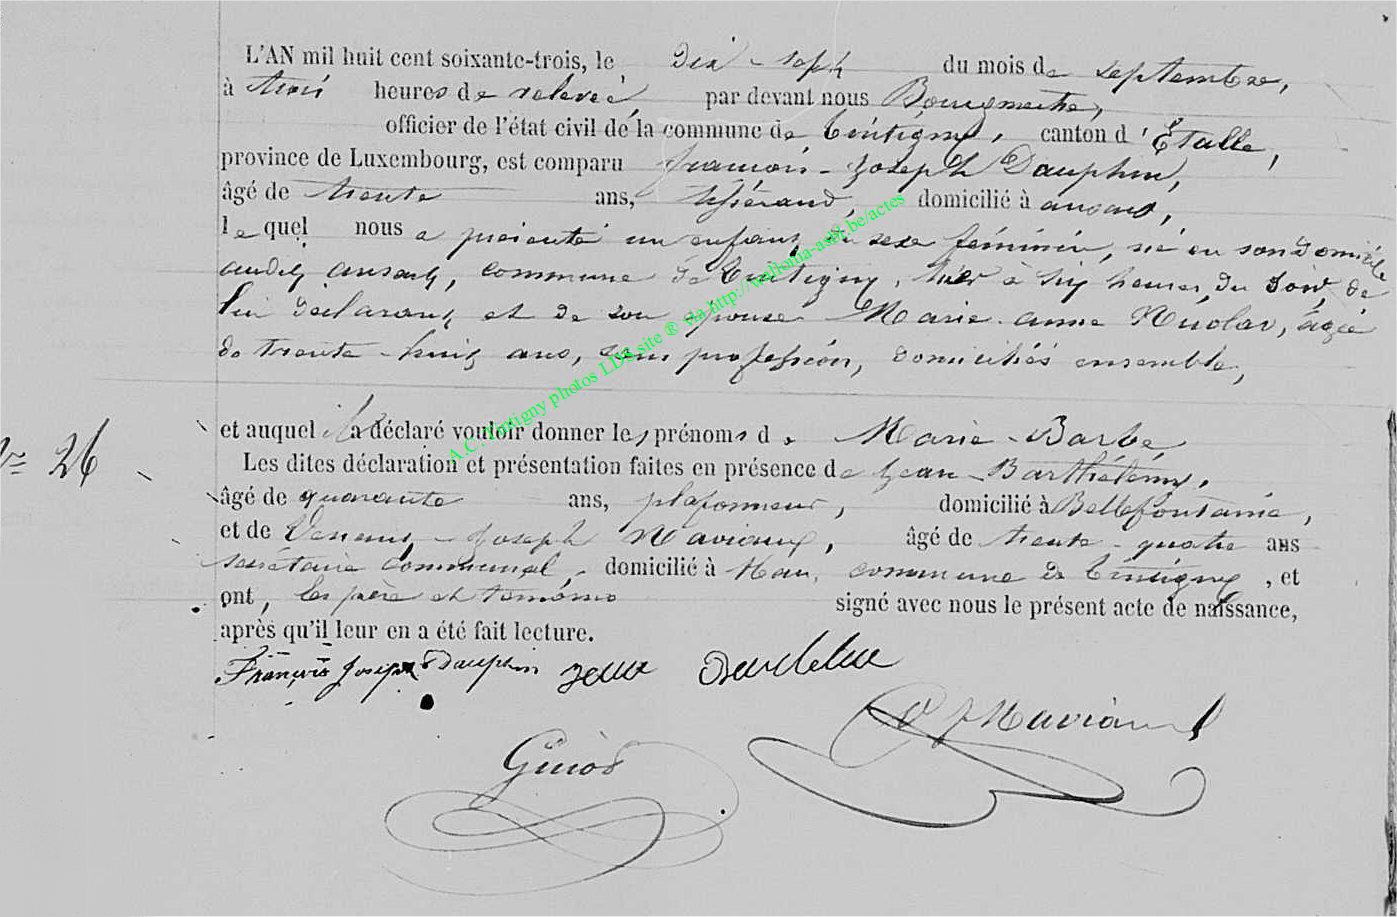 L'AN mil huit cent soixante-trois, le dix-sept du mois de septembre,
à trois heures de relevée, par devant nous Bourgmestre,
officier de l'état civil de la commune de Tintigny, canton d'Étalle,
province de Luxembourg, est comparu françois-Joseph Dauphin,
âgé de trente ans, tisserand, domicilié à ansart,
lequel nous a présenté un enfant du sexe féminin, né en son domicile
audit ansart, commune de Tintigny, hier à huit heures du soir, de
lui déclarant, et de son épouse Marie-anne Nicolas, âgée
de trente-huit ans, sans profession, domiciliés ensemble,
et auquel il a déclaré vouloir donner les prénoms de Marie-Barbe
N° 26
Les dites déclaration et présentation faites en présence de Jean-Barthélemy,
âgé de quarante ans, plafonneur, domicilié à Bellefontaine,
et de Joseph Maviaux, âgé de trente-quatre ans
secrétaire communal, domicilié à Han, commune de Tintigny, et
ont, les père et témoins signé avec nous le présent acte de naissance,
après qu'il leur en a été fait lecture.
François Joseph Dauphin
Maviaux
Guiot
A.C. Tintigny photos LDS site ® via http://wallonia-asbl.be/actes